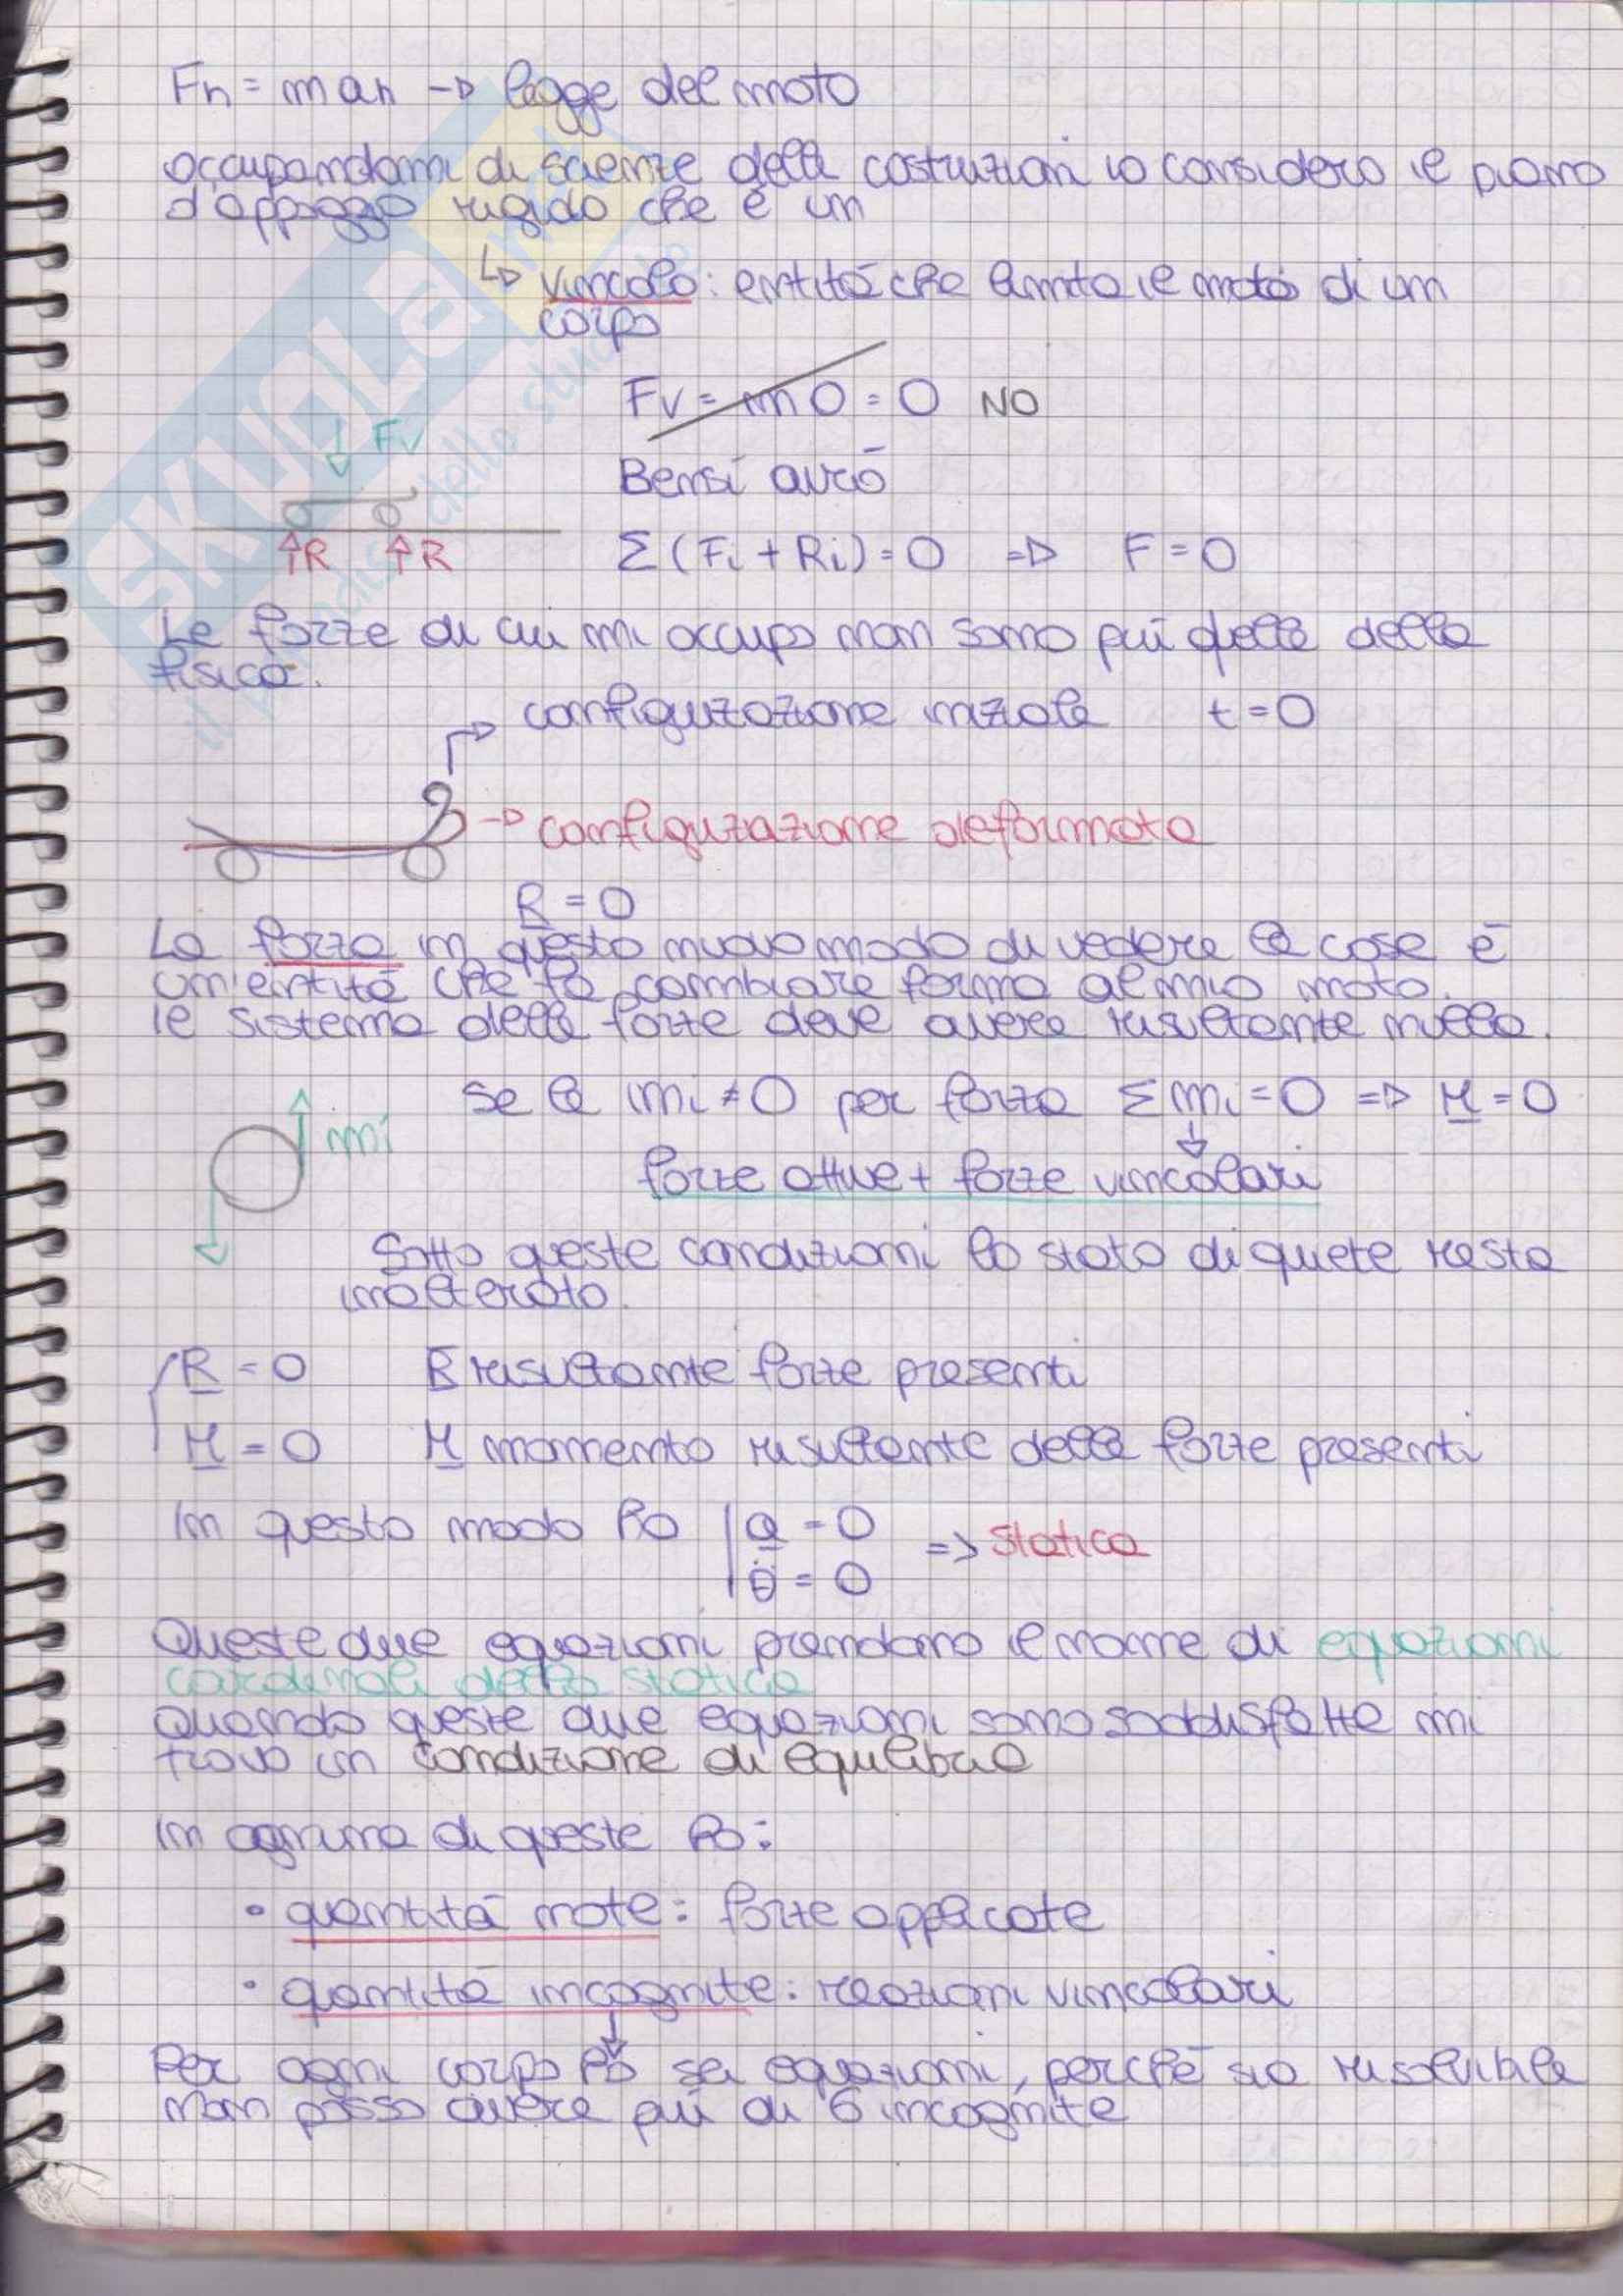 Fn = m an -> legge del moto
occupandomi di scienze delle costruzioni io considero il piano
d'appoggio rigido che è un
↳ vincolo: entità che limita il moto di un
corpo
Fv = m 0 = 0 NO
Fv
Bensì avrò
R R
Σ (Fi + Ri) = 0 => F = 0
Le forze di cui mi occupo non sono più quelle della
fisica.
configurazione iniziale t = 0
-> configurazione deformata
R = 0
La forza in questo nuovo modo di vedere le cose è
un'entità che fa cambiare forma al mio moto.
il sistema delle forze deve avere risultante nulla.
se la mi ≠ 0 per forza Σ mi = 0 => M = 0
mi
forze attive + forze vincolari
Sotto queste condizioni lo stato di quiete resta
inalterato.
R = 0 R risultante forze presenti
M = 0 M momento risultante delle forze presenti
In questo modo ho a = 0
=> statica
θ̈ = 0
Queste due equazioni prendono il nome di equazioni
cardinali della statica
Quando queste due equazioni sono soddisfatte mi
trovo in condizione di equilibrio
In ognuna di queste ho:
• quantità note: forze applicate
• quantità incognite: reazioni vincolari
Per ogni corpo ho sei equazioni, perché sia risolvibile
non posso avere più di 6 incognite